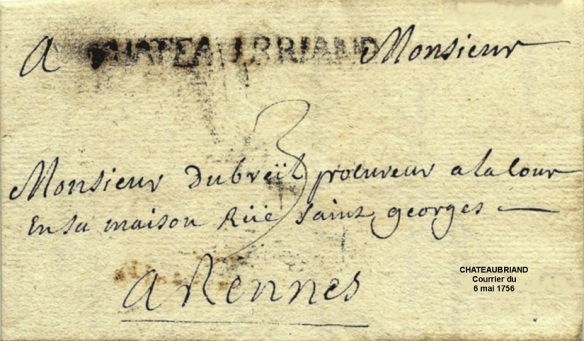 A CHATEAUBRIAND Monsieur
3
Monsieur dubreïl procureur a la Cour
En sa maison Rüe saint georges
a Rennes
CHATEAUBRIAND
Courrier du
6 mai 1756